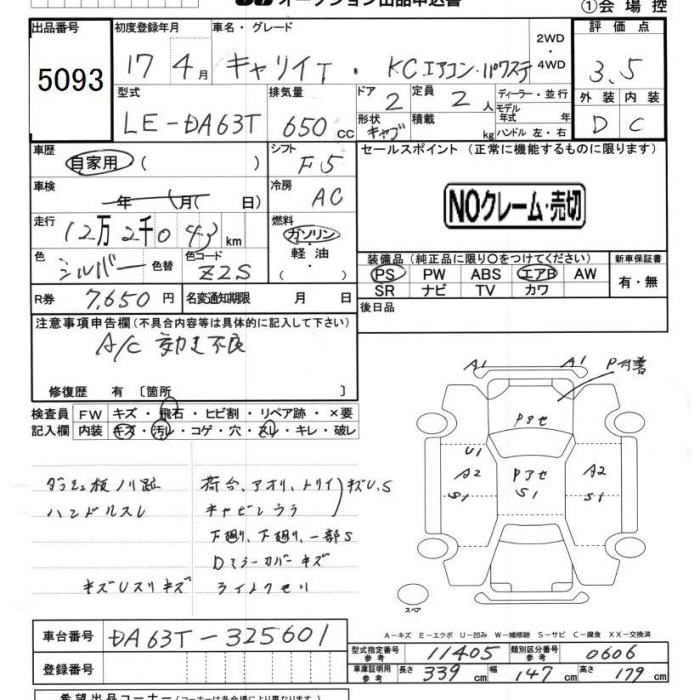 オークション出品申込書
①会場控
出品番号 初度登録年月 車名・グレード 2WD・4WD 評価点
5093 17 4月 キャリイT・KCエアコン・パワステ 3.5
型式 排気量 ドア 2 定員 2人 ディーラー・並行 外装 内装
LE-DA63T 650cc 形状 キャブ 積載 kg モデル年式 年 ハンドル 左・右 D C
車歴 自家用 ( ) シフト F5 セールスポイント (正常に機能するものに限ります)
車検 年 月( 日) 冷房 AC
NOクレーム・売切
走行 12万2千043km 燃料 ガソリン・軽油・( )
色 シルバー 色替 色コード Z2S
装備品 (純正品に限り〇をつけてください) 新車保証書
PS PW ABS エアB AW 有・無
SR ナビ TV カワ
R券 7,650円 名変通知期限 月 日
後日品
注意事項申告欄 (不具合内容等は具体的に記入して下さい)
A/C 効き不良
修復歴 有 [箇所 ]
検査員 FW キズ・飛石・ヒビ割・リペア跡・×要
記入欄 内装 キズ・汚レ・コゲ・穴・スレ・キレ・破レ
A1 A1 P付着
Pヨセ
U1
A2 Pヨセ A2
S1 S1 S1
ダッシュ板ノリ跡 荷台、アオリ、トリイ キズU.S
ハンドルスレ キャビンウラ
下廻り、下廻り、一部S
Dミラーカバーキズ
キズUスリキズ ライトクモリ
スペア
A-キズ E-エクボ U-凹み W-補修跡 S-サビ C-腐食 XX-交換済
車台番号 DA63T-325601
型式指定番号 参考 11405 類別区分番号 参考 0606
登録番号
車庫証明用 参考 長さ 339cm 幅 147cm 高さ 179cm
希望出品コーナー (コーナーは各会場により異なります)